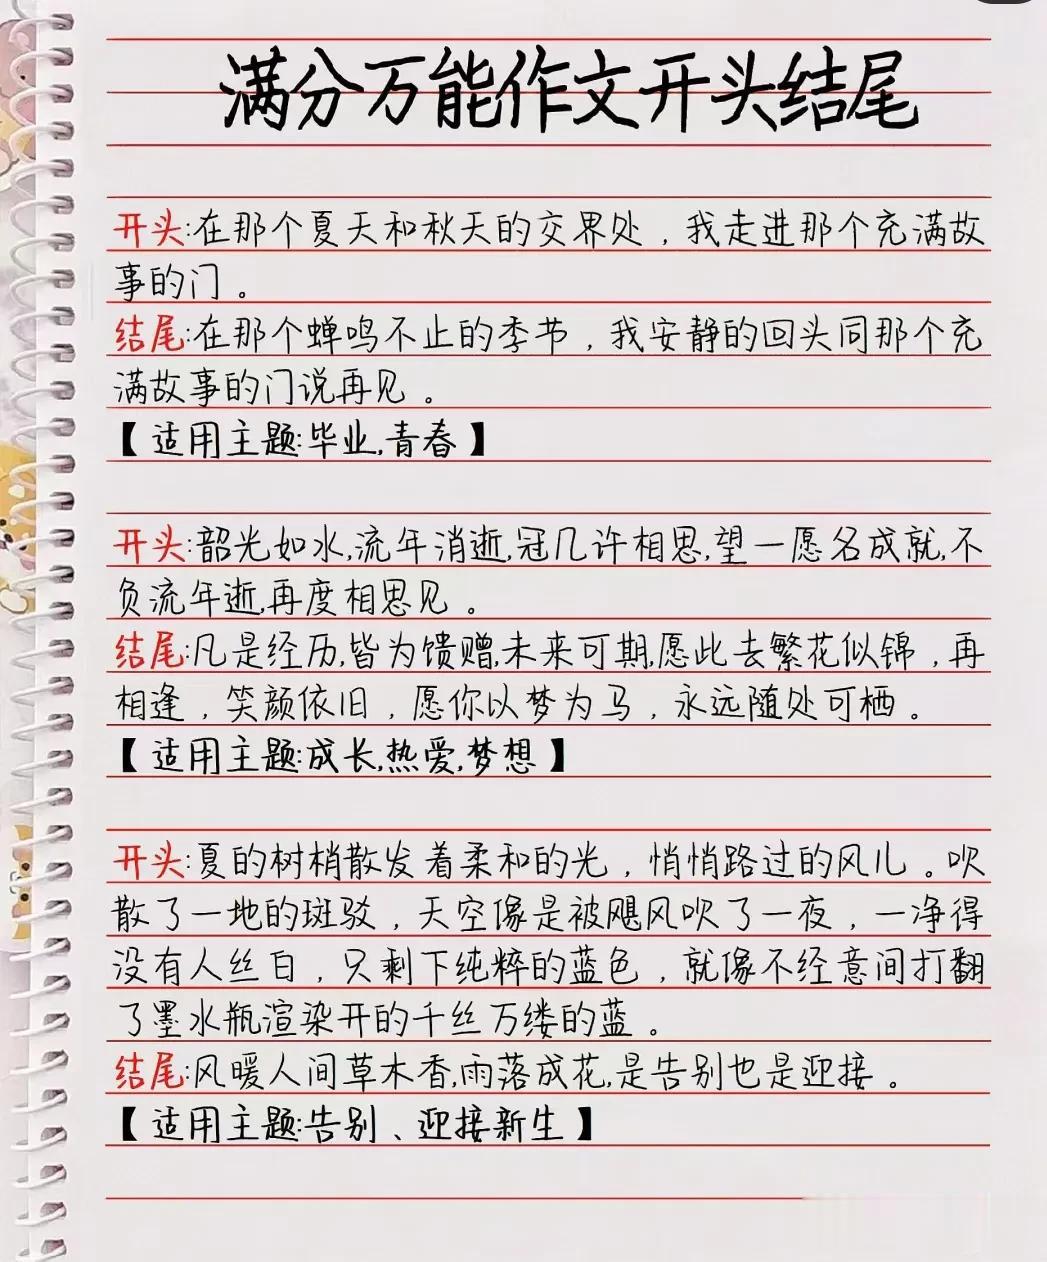 满分万能作文开头结尾
开头:在那个夏天和秋天的交界处，我走进那个充满故
事的门。
结尾:在那个蝉鸣不止的季节，我安静的回头同那个充
满故事的门说再见。
【适用主题:毕业,青春】
开头:韶光如水,流年消逝,冠几许相思,望一愿名成就,不
负流年逝,再度相思见。
结尾:凡是经历,皆为馈赠,未来可期,愿此去繁花似锦，再
相逢，笑颜依旧，愿你以梦为马，永远随处可栖。
【适用主题:成长,热爱,梦想】
开头:夏的树梢散发着柔和的光，悄悄路过的风儿。吹
散了一地的斑驳，天空像是被飓风吹了一夜，一净得
没有人丝白，只剩下纯粹的蓝色，就像不经意间打翻
了墨水瓶渲染开的千丝万缕的蓝。
结尾:风暖人间草木香,雨落成花,是告别也是迎接。
【适用主题:告别、迎接新生】